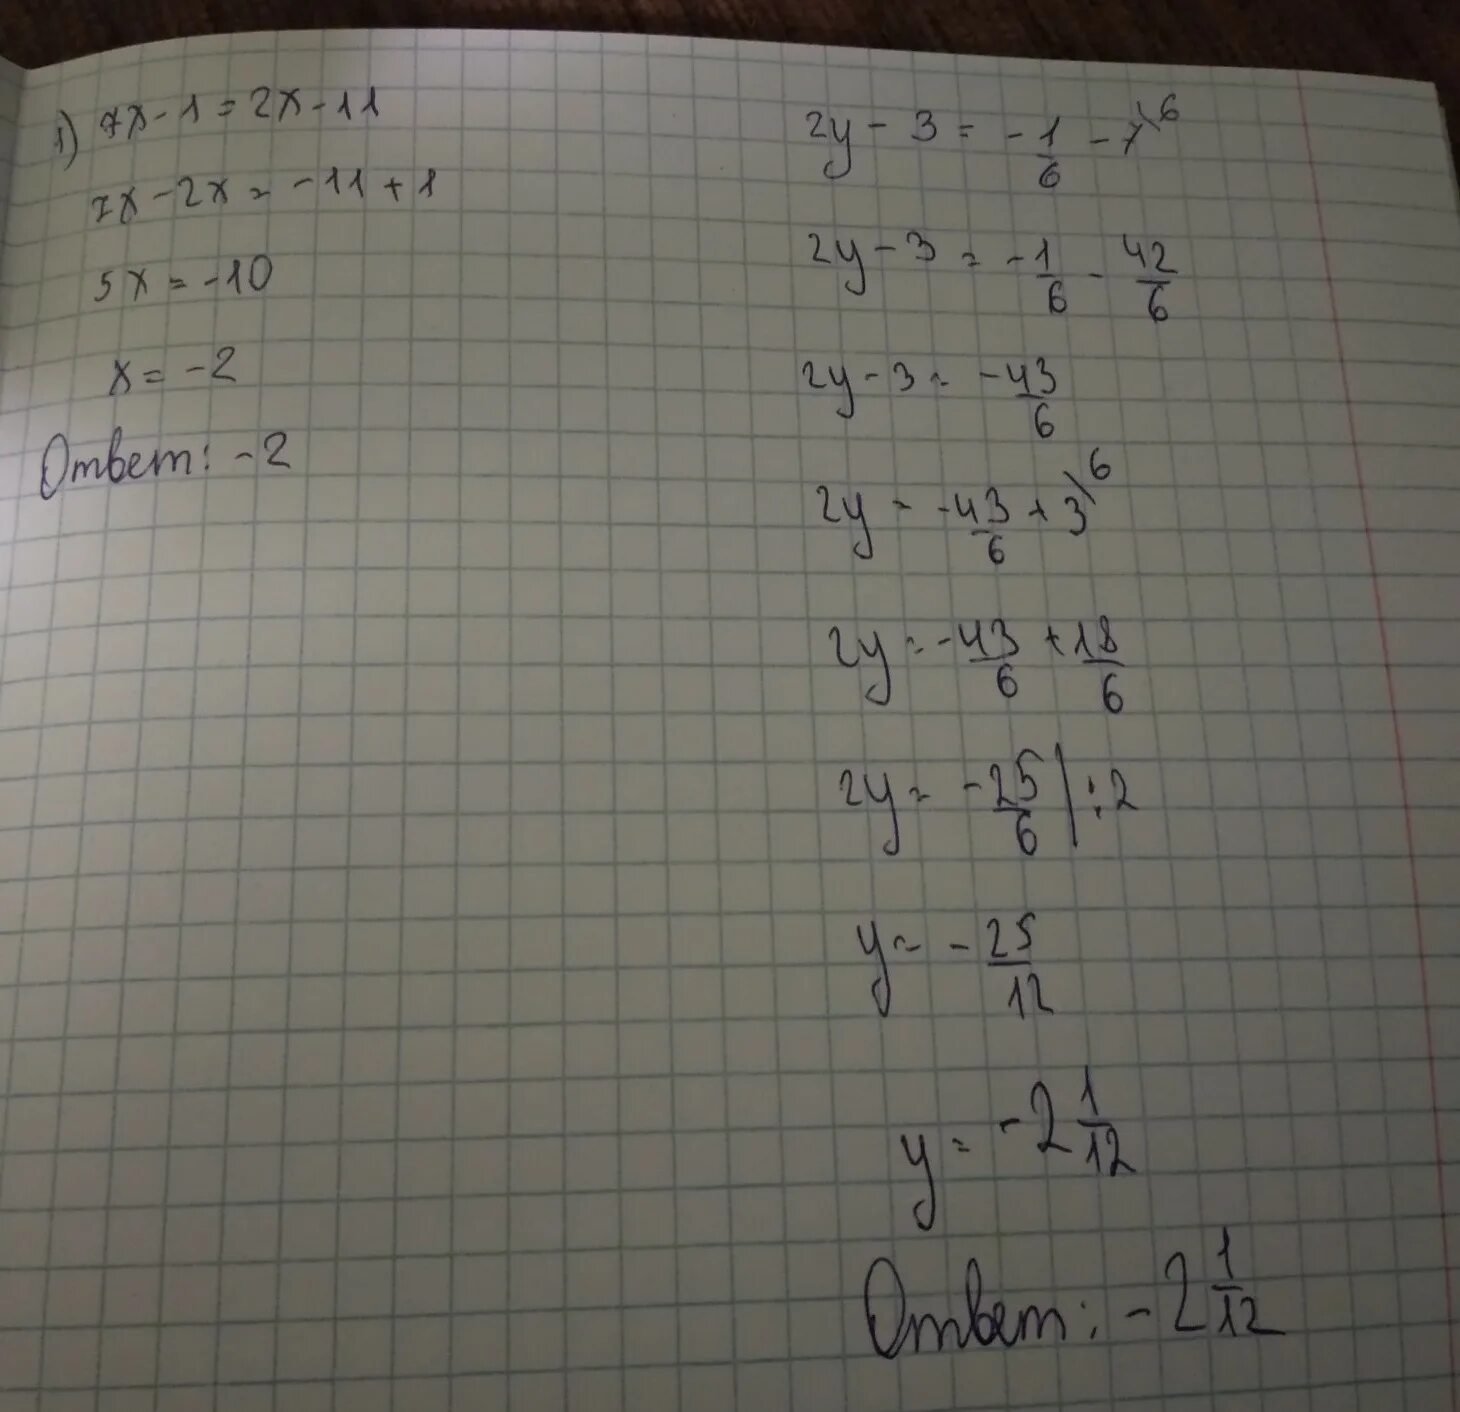 1) 7x - 1 = 2x - 11
7x - 2x = -11 + 1
5x = -10
x = -2
Ответ: -2
2y - 3 = -1/6 - 7\6
2y - 3 = -1/6 - 42/6
2y - 3 = -43/6
2y = -43/6 + 3\6
2y = -43/6 + 18/6
2y = -25/6 | :2
y = -25/12
y = -2 1/12
Ответ: -2 1/12